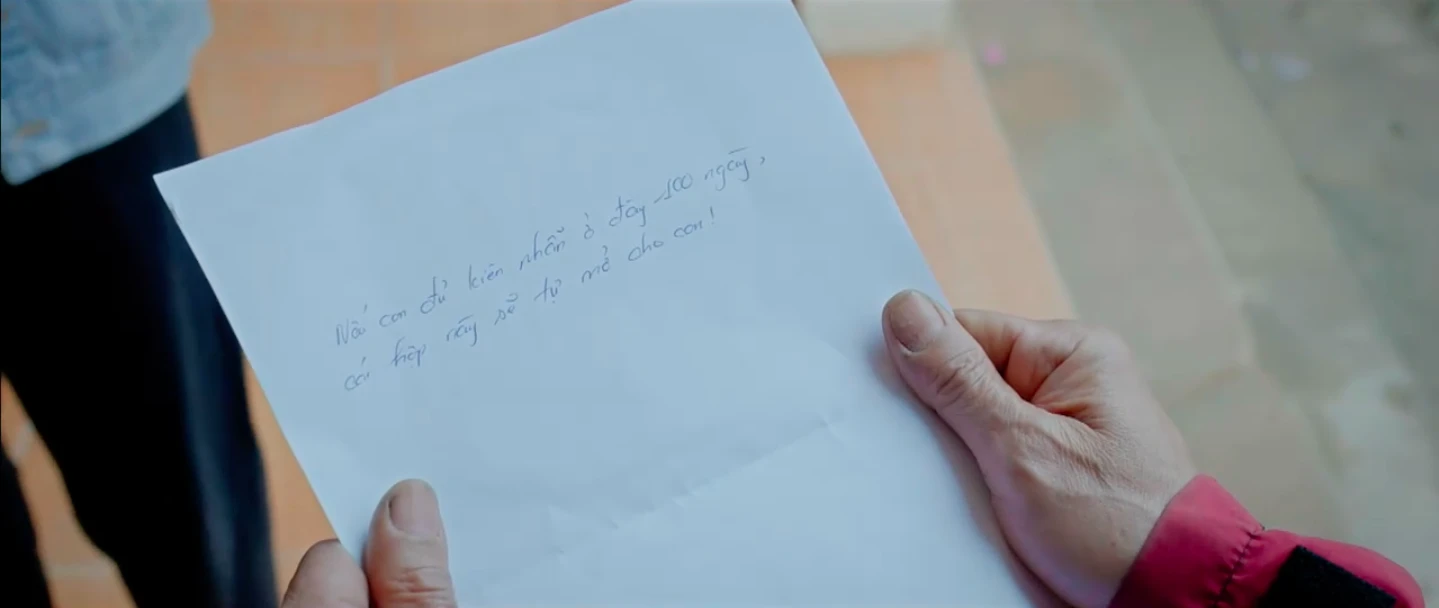 Nếu con đủ kiên nhẫn ở đây 100 ngày,
cái hộp này sẽ tự mở cho con!